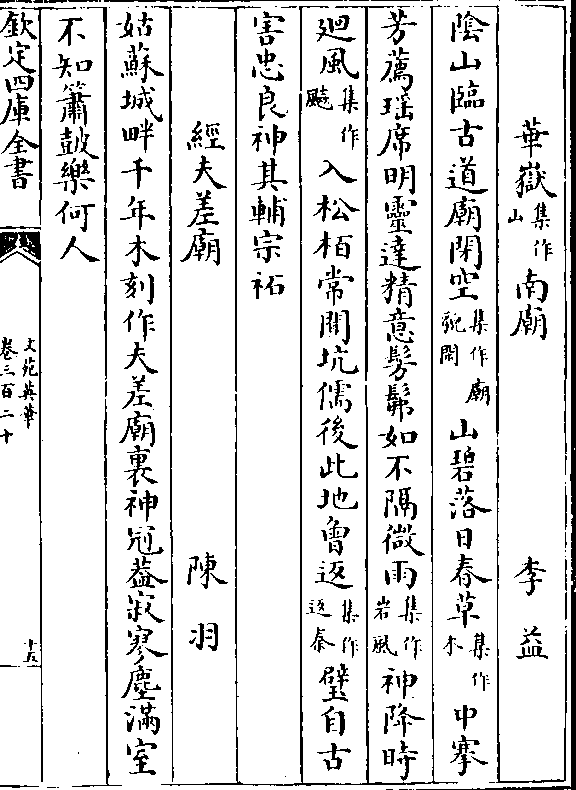 華嶽集作山南廟 李益
陰山臨古道廟閉空集作廟貌閉山碧落日春草集作木中搴
芳薦瑤席明靈達精意髣髴如不隔微雨集作岩風神降時
廻風集作飈入松栢常聞坑儒後此地曾返集作返秦璧自古
害忠良神其輔宗祏
經夫差廟 陳羽
姑蘇城畔千年木刻作夫差廟裏神冠葢寂寥塵滿室
不知簫鼓樂何人
欽定四庫全書
文苑英華
卷三百二十
十五